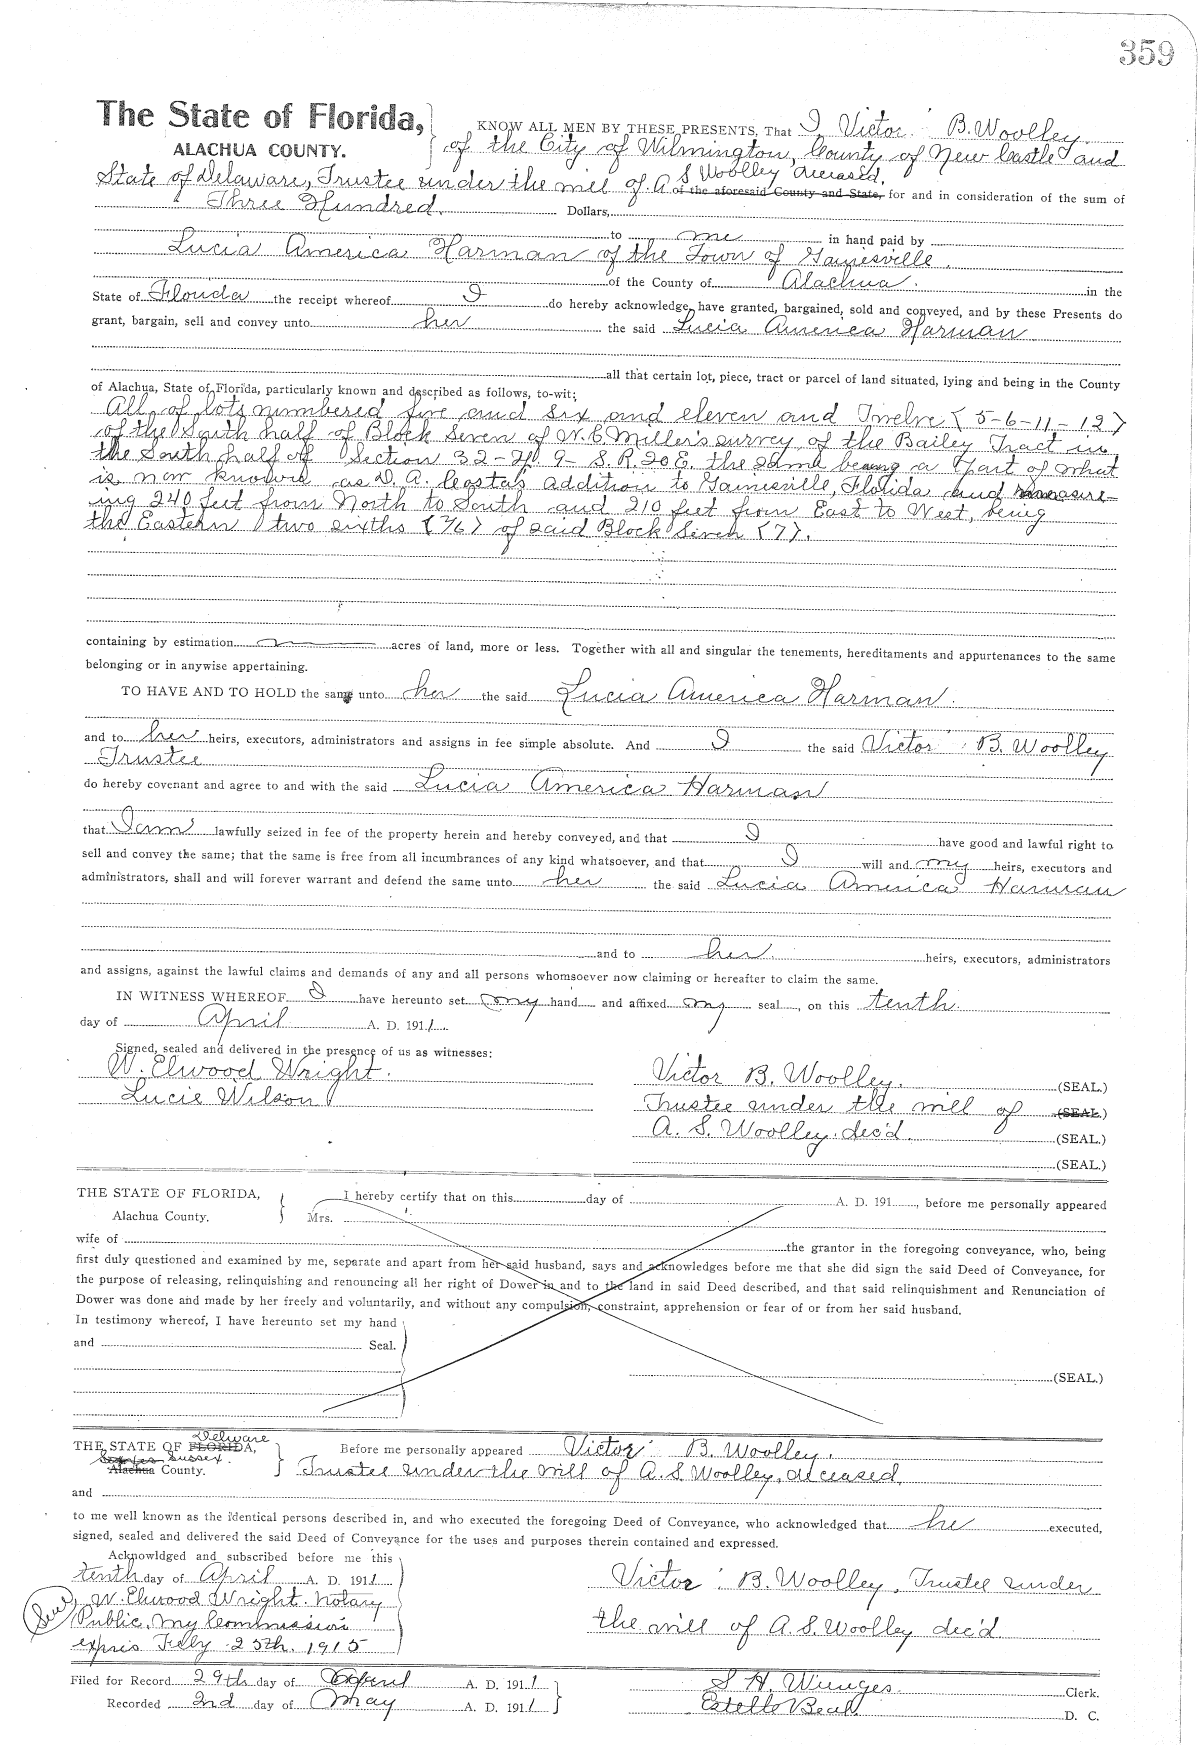 359
The State of Florida,
ALACHUA COUNTY.
KNOW ALL MEN BY THESE PRESENTS, That I Victor B. Woolley
of the City of Wilmington, County of New Castle and
State of Delaware, Trustee under the will of A S Woolley deceased, of the aforesaid County and State, for and in consideration of the sum of
Three Hundred Dollars,
to me in hand paid by
Lucia America Harman of the Town of Gainesville
of the County of Alachua in the
State of Florida the receipt whereof I do hereby acknowledge, have granted, bargained, sold and conveyed, and by these Presents do
grant, bargain, sell and convey unto her the said Lucia America Harman
all that certain lot, piece, tract or parcel of land situated, lying and being in the County
of Alachua, State of Florida, particularly known and described as follows, to-wit:
All of lots numbered five and six and eleven and Twelve (5-6-11-12)
of the South half of Block Seven of W. E. Miller's survey of the Bailey Tract in
the South half of Section 32-Tp 9-S. R. 20 E. the same being a part of what
is now known as D. A. Costa's addition to Gainesville, Florida and measure-
ing 240 feet from North to South and 210 feet from East to West, being
the Eastern two sixths (2/6) of said Block Seven (7).
containing by estimation acres of land, more or less. Together with all and singular the tenements, hereditaments and appurtenances to the same
belonging or in anywise appertaining.
TO HAVE AND TO HOLD the same unto her the said Lucia America Harman.
and to her heirs, executors, administrators and assigns in fee simple absolute. And I the said Victor B. Woolley
Trustee
do hereby covenant and agree to and with the said Lucia America Harman
that I am lawfully seized in fee of the property herein and hereby conveyed, and that I have good and lawful right to
sell and convey the same; that the same is free from all incumbrances of any kind whatsoever, and that I will and my heirs, executors and
administrators, shall and will forever warrant and defend the same unto her the said Lucia America Harman
and to her heirs, executors, administrators
and assigns, against the lawful claims and demands of any and all persons whomsoever now claiming or hereafter to claim the same.
IN WITNESS WHEREOF I have hereunto set my hand and affixed my seal, on this tenth
day of April A. D. 1911.
Signed, sealed and delivered in the presence of us as witnesses:
W. Elwood Wright.
Lucie Wilson
Victor B. Woolley. (SEAL.)
Trustee under the will of (SEAL.)
A. S. Woolley. dec'd. (SEAL.)
(SEAL.)
THE STATE OF FLORIDA,
Alachua County.
I hereby certify that on this day of A. D. 191 , before me personally appeared
Mrs.
wife of the grantor in the foregoing conveyance, who, being
first duly questioned and examined by me, separate and apart from her said husband, says and acknowledges before me that she did sign the said Deed of Conveyance, for
the purpose of releasing, relinquishing and renouncing all her right of Dower in and to the land in said Deed described, and that said relinquishment and Renunciation of
Dower was done and made by her freely and voluntarily, and without any compulsion, constraint, apprehension or fear of or from her said husband.
In testimony whereof, I have hereunto set my hand
and Seal.
(SEAL.)
Delware
THE STATE OF FLORIDA,
Sussex
Alachua County.
Before me personally appeared Victor B. Woolley.
Trustee under the will of A. S Woolley, deceased
and
to me well known as the identical persons described in, and who executed the foregoing Deed of Conveyance, who acknowledged that he executed,
signed, sealed and delivered the said Deed of Conveyance for the uses and purposes therein contained and expressed.
Acknowldged and subscribed before me this
tenth day of April A. D. 1911
Seal W. Elwood Wright. Notary
Public. My Commission
expires 25th. 1915
Victor B. Woolley, Trustee under
the will of A. S. Woolley dec'd
Filed for Record 29th day of April A. D. 1911
Recorded 2nd day of May A. D. 1911
S H. Wienges Clerk.
Estelle Beall D. C.